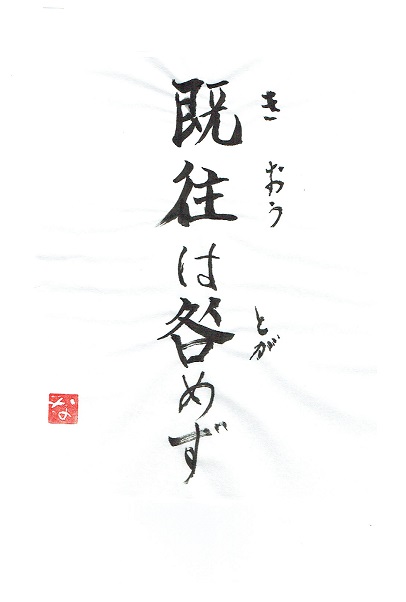 既往は咎めず
きおう
とが